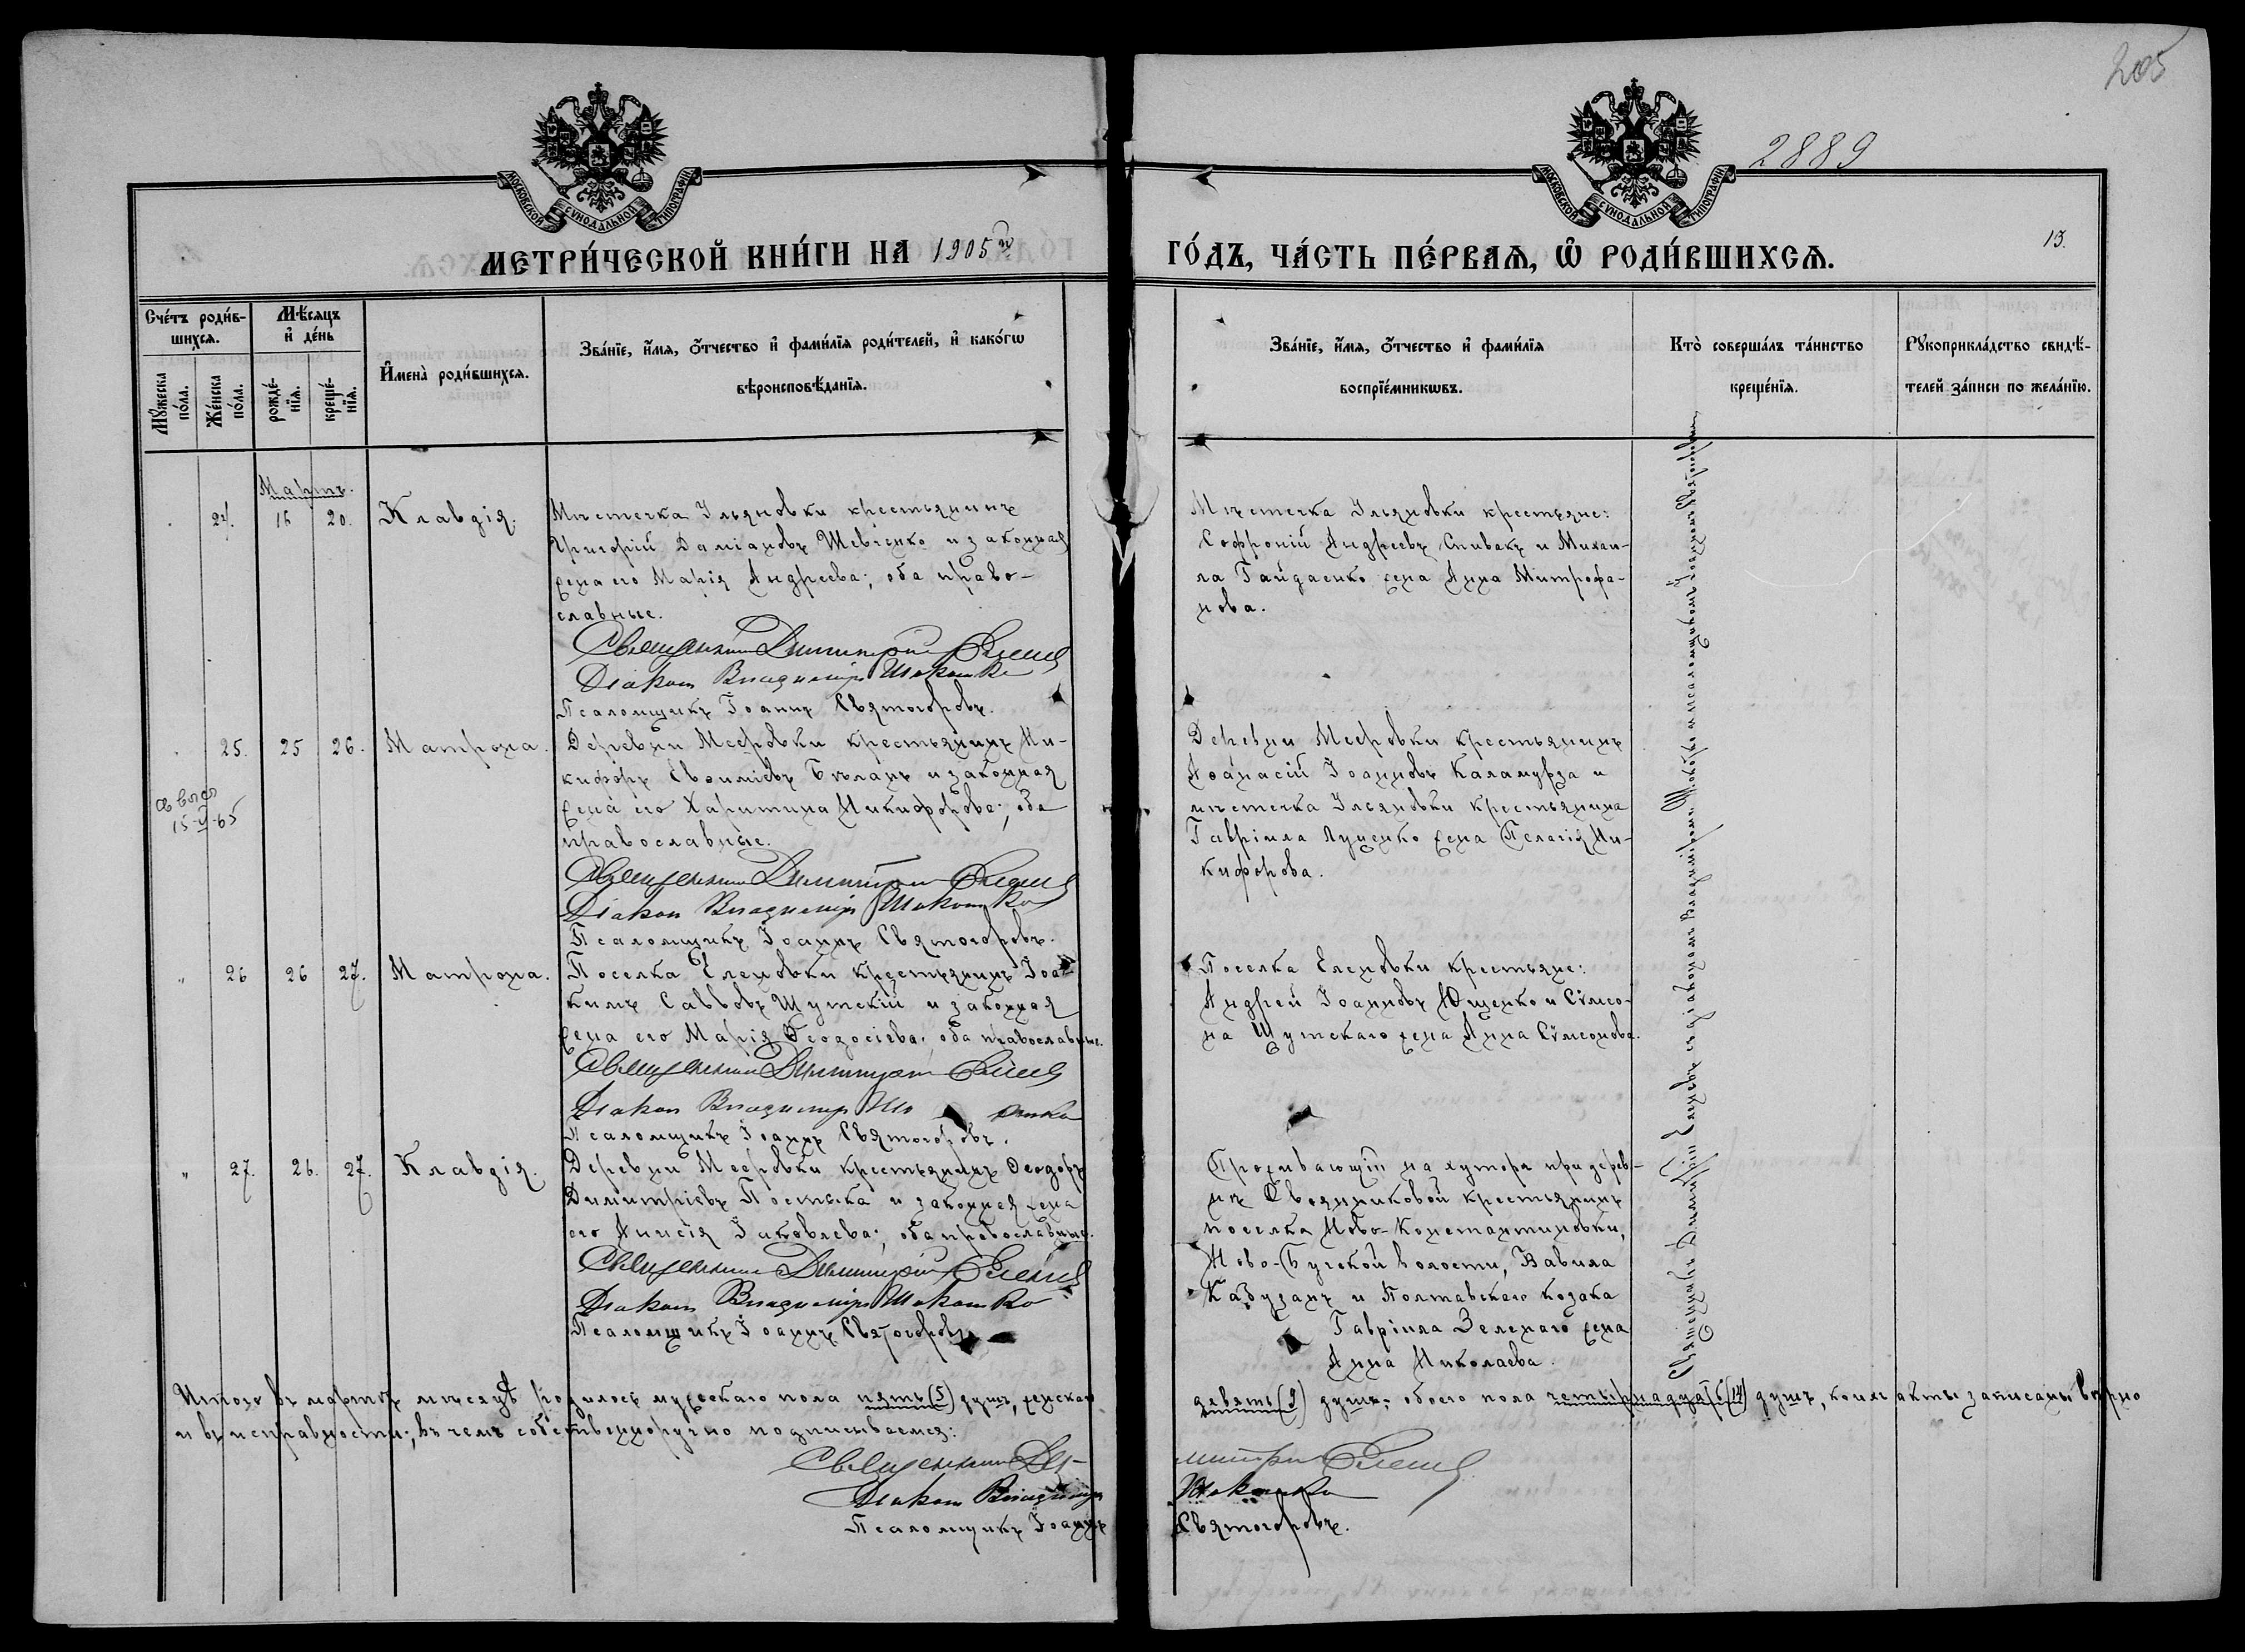 205
2889
МОСКОВСКОЙ СѴНОДАЛЬНОЙ ТИПОГРАФІИ
МОСКОВСКОЙ СѴНОДАЛЬНОЙ ТИПОГРАФІИ
МЕТРИ́ЧЕСКОЙ КНИ́ГИ НА 1905й
ГО́ДЪ, ЧА́СТЬ ПЕ́РВАѦ, Ѡ РОДИ́ВШИХСѦ.
13.
Сче́тъ роди́в-
шихсѧ.
Мꙋ́жеска по́ла.
Же́нска по́ла.
Мѣ́сѧцъ
и҆ де́нь
рожде́-
нїѧ.
креще́-
нїѧ.
И҆мена̀ роди́вшихсѧ.
Зва́нїе, и҆́мѧ, ѻ҆́тчество и҆ фами́лїѧ роди́телей, и҆ како́гѡ
вѣроисповѣ́данїѧ.
Зва́нїе, и҆́мѧ, ѻ҆́тчество и҆ фами́лїѧ
воспрїе́мникѡвъ.
Кто̀ соверша́лъ та́инство
креще́нїѧ.
Рꙋкоприкла́дство свидѣ́-
телей за́писи по жела́нїю.
Мартъ.
24. 16 20. Клавдія.
Мѣстечка Ильяновки крестьянинъ
Григорій Даміановъ Шевченко и законная
жена его Марія Андреева; оба право-
славные.
Священникъ Димитрій
Діаконъ Владиміръ
Псаломщикъ Іоаннъ Святогоровъ.
Мѣстечка Ильяновки крестьяне:
Софроній Андреевъ Спивакъ и Михаи-
ла Гайдаенко жена Анна Митрофа-
нова.
25. 25 26. Матрона.
15-V-65
Деревни Мееровки крестьянинъ Ни-
кифоръ Евѳиміевъ Бѣланъ и законная
жена его Харитина Никифорова; оба
православные.
Священникъ Димитрій
Діаконъ Владиміръ
Псаломщикъ Іоаннъ Святогоровъ.
Деревни Мееровки крестьянинъ
Аѳанасій Іоанновъ Каламурза и
мѣстечка Ильяновки крестьянина
Гавріила Луценко жена Пелагія Ни-
кифорова.
" 26 26 27. Матрона.
Поселка Еленовки крестьянинъ Іоа-
кимъ Саввовъ Шутскій и законная
жена его Марія Ѳеодосіева; оба православные.
Священникъ Димитрій
Діаконъ Владиміръ
Псаломщикъ Іоаннъ Святогоровъ.
Поселка Еленовки крестьяне:
Андрей Іоанновъ Ющенко и Сѵмео-
на Шутскаго жена Анна Сѵмеонова.
" 27. 26. 27. Клавдія.
Деревни Мееровки крестьянинъ Ѳеодоръ
Димитріевъ Постыка и законная жена
его Анисія Іаковлева; оба православные.
Священникъ Димитрій
Діаконъ Владиміръ
Псаломщикъ Іоаннъ Святогоровъ
Проживающій на хуторѣ при дерев-
нѣ крестьянинъ
поселка Ново-Константиновки,
Ново-Бугской волости, Вавила
Кабузанъ и Полтавскаго козака
Гавріила Зеленаго жена
Анна Николаева.
Священникъ Димитрій съ діакономъ Владиміромъ и псаломщикомъ Іоанномъ Святогоровымъ
Итого въ мартѣ мѣсяцѣ родилось мужескаго пола пять (5) душъ, женскаго
девять (9) душъ; обоего пола четырнадцать (14) душъ, коимъ акты записаны вѣрно
и въ исправности; въ чемъ собственноручно подписываемся:
Священникъ Ди-
митрій
Діаконъ Владиміръ
Псаломщикъ Іоаннъ
Святогоровъ.